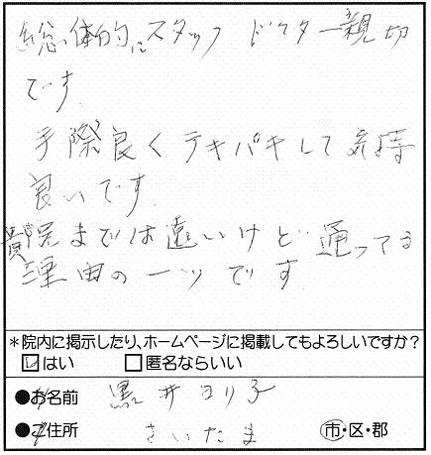 総体的にスタッフ ドクター親切
です。
手際良くテキパキして気持
良いです。
貴院までは遠いけど通ってる
理由の一ツです
*院内に掲示したり、ホームページに掲載してもよろしいですか?
はい 匿名ならいい
●お名前 黒井ヨリ子
●ご住所 さいたま 市・区・郡